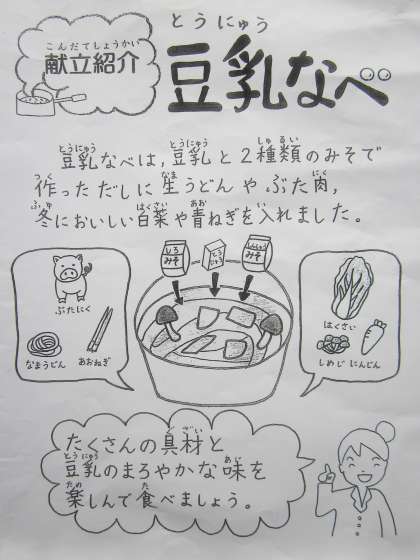 こんだてしょうかい
献立紹介
とうにゅう
豆乳なべ
とうにゅう とうにゅう しゅるい
豆乳なべは,豆乳と2種類のみそで
つく なま にく
作っただしに生うどんやぶた肉,
ふゆ はくさい あお い
冬においしい白菜や青ねぎを入れました。
しろみそ
とうにゅう
しんしゅうみそ
ぶたにく
なまうどん
あおねぎ
はくさい
しめじ
にんじん
ぐざい
たくさんの具材と
とうにゅう あじ
豆乳のまろやかな味を
たの た
楽しんで食べましょう。